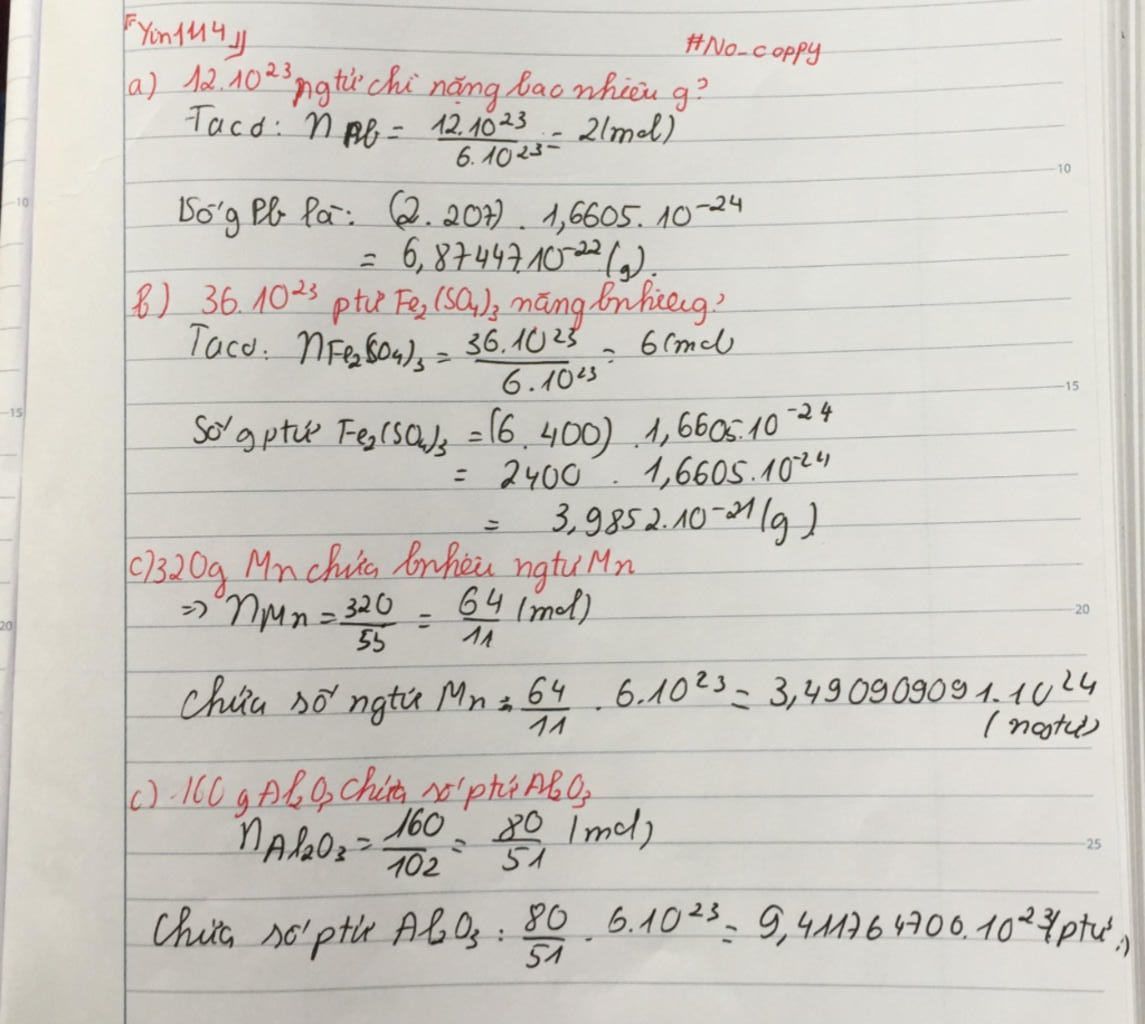 『Yin1114』
#No_coppy
a) 12.10²³ ngtử chì nặng bao nhiêu g?
Ta có: n Pb = 12.10²³/6.10²³ = 2(mol)
Số g Pb là: (2.207).1,6605.10⁻²⁴
= 6,87447.10⁻²²(g).
b) 36.10²³ ptử Fe₂(SO₄)₃ nặng bnhiêu g?
Ta có: nFe₂(SO₄)₃ = 36.10²³/6.10²³ = 6(mol)
Số g ptử Fe₂(SO₄)₃ = (6.400).1,6605.10⁻²⁴
= 2400 . 1,6605.10⁻²⁴
= 3,9852.10⁻²¹(g)
c) 320g Mn chứa bnhêu ngtử Mn
=> nMn = 320/55 = 64/11 (mol)
Chứa số ngtử Mn = 64/11 . 6.10²³ = 3,490909091.10²⁴
(ngtử)
c) 160 g Al₂O₃ chứa số ptử Al₂O₃
nAl₂O₃ = 160/102 = 80/51 (mol)
Chứa số ptử Al₂O₃ : 80/51 . 6.10²³ = 9,411764706.10²³(ptử)
10
15
20
25
10
15
20